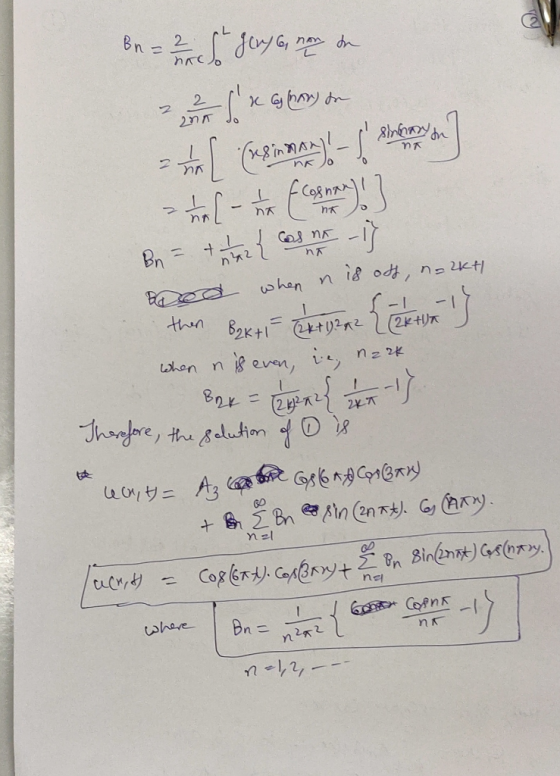 ②
Bn = 2/nπc ∫₀ᴸ g(x) Cos nπx/L dx
= 2/2nπ ∫₀¹ x Cos(nπx) dx
= 1/nπ [ (x sin nπx/nπ)₀¹ - ∫₀¹ sin(nπx)/nπ dx ]
= 1/nπ [ - 1/nπ (-Cos nπx/nπ)₀¹ ]
Bn = + 1/n²π² { Cos nπ/nπ - 1 }
when n is odd, n = 2k+1
then B2k+1 = 1/(2k+1)²π² { -1/(2k+1)π - 1 }
when n is even, i.e, n = 2k
B2k = 1/(2k)²π² { 1/2kπ - 1 }
Therefore, the solution of ① is
u(x,t) = A3 Cos(6πt) Cos(3πx)
+ ∞Σn=1 Bn sin(2nπt). Cos(nπx).
u(x,t) = Cos(6πt). Cos(3πx) + ∞Σn=1 Bn Sin(2nπt) Cos(nπx).
where Bn = 1/n²π² { Cosnπ/nπ - 1 }
n = 1, 2, - - - -